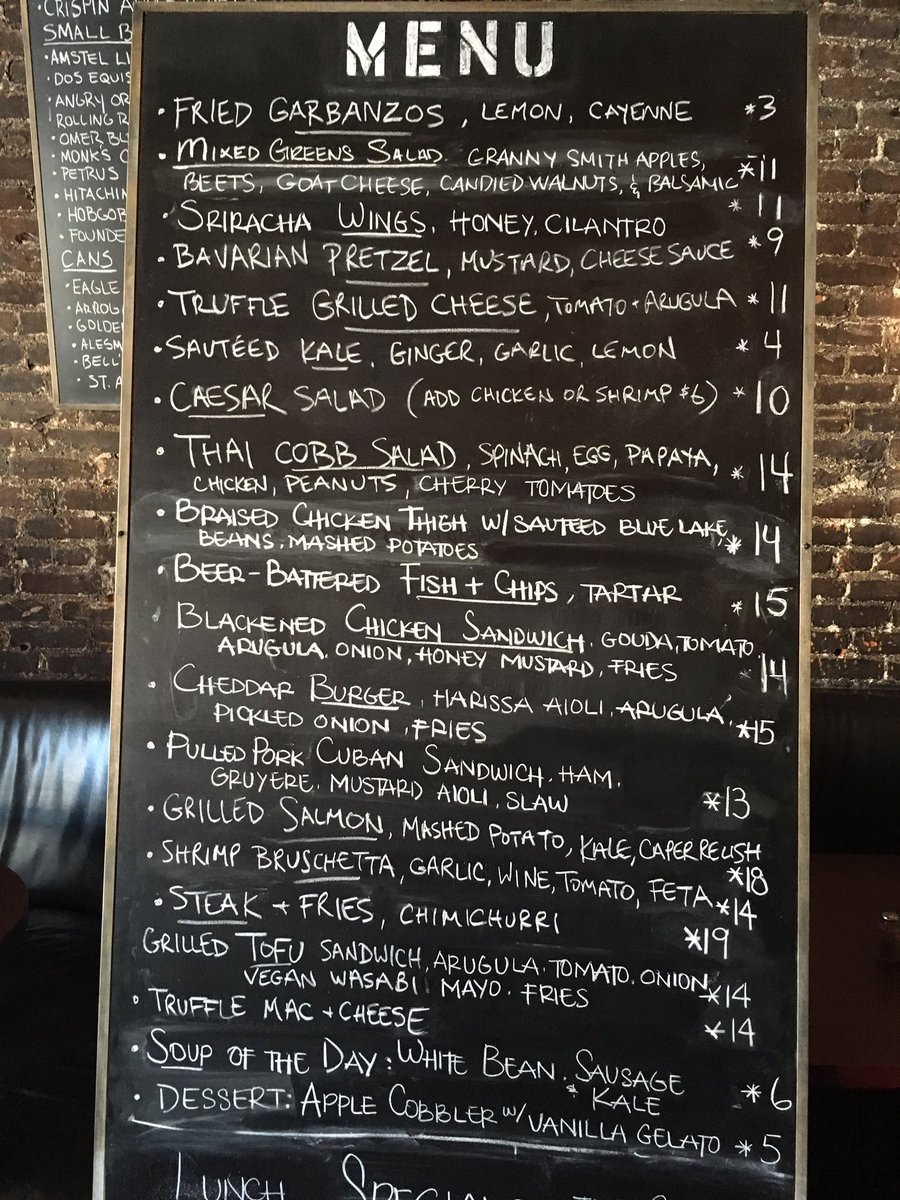 CRISPIN
SMALL B
• AMSTEL LI
• DOS EQUIS
• ANGRY OR
ROLLING R
• OMER BL
• MONK'S C
• PETRUS
• HITACHIN
• HOBGOB
• FOUNDE
CANS
• EAGLE
• ARROG
• GOLDEN
• ALESM
• BELL'
• ST. A
MENU
• FRIED GARBANZOS, LEMON, CAYENNE *3
• MIXED GREENS SALAD. GRANNY SMITH APPLES, *11
BEETS, GOAT CHEESE, CANDIED WALNUTS, & BALSAMIC
• SRIRACHA WINGS, HONEY, CILANTRO * 11
• BAVARIAN PRETZEL, MUSTARD, CHEESE SAUCE * 9
• TRUFFLE GRILLED CHEESE, TOMATO + ARUGULA * 11
• SAUTÉED KALE, GINGER, GARLIC, LEMON * 4
• CAESAR SALAD (ADD CHICKEN OR SHRIMP $6) * 10
• THAI COBB SALAD, SPINACH, EGG, PAPAYA, * 14
CHICKEN, PEANUTS, CHERRY TOMATOES
• BRAISED CHICKEN THIGH W/ SAUTEED BLUE LAKE, * 14
BEANS, MASHED POTATOES
• BEER-BATTERED FISH + CHIPS, TARTAR * 15
BLACKENED CHICKEN SANDWICH. GOUDA, TOMATO,
ARUGULA. ONION, HONEY MUSTARD, FRIES 14
• CHEDDAR BURGER, HARISSA AIOLI, ARUGULA, *15
PICKLED ONION, FRIES
• PULLED PORK CUBAN SANDWICH, HAM,
GRUYERE, MUSTARD AIOLI, SLAW *13
• GRILLED SALMON, MASHED POTATO, KALE, CAPER RELISH *18
• SHRIMP BRUSCHETTA, GARLIC, WINE, TOMATO, FETA *14
• STEAK + FRIES, CHIMICHURRI *19
GRILLED TOFU SANDWICH, ARUGULA. TOMATO. ONION,
VEGAN WASABI MAYO. FRIES *14
• TRUFFLE MAC + CHEESE *14
• SOUP OF THE DAY: WHITE BEAN, SAUSAGE
& KALE *6
• DESSERT: APPLE COBBLER W/ VANILLA GELATO * 5
LUNCH SPECIAL